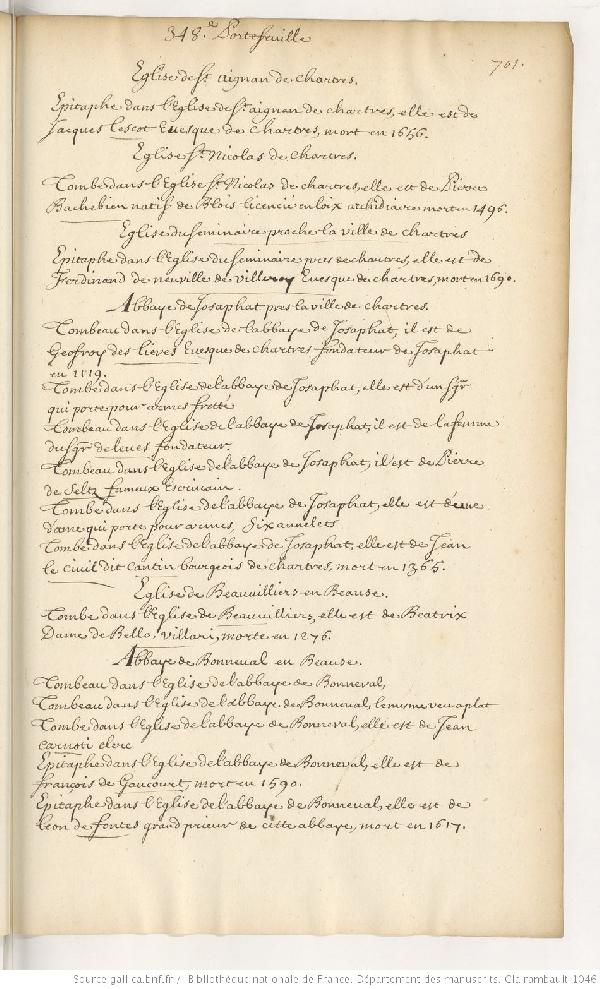 348.e Portefeuille
701.
Eglise de St aignan de chartres.
Epitaphe dans l'Eglise de St aignan de chartres, elle est de
Jacques Lescot Euesque de chartres, mort en 1656.
Eglise St Nicolas de chartres.
Tombe dans l'Eglise St Nicolas de chartres, elle est de Pierre
Bachebien natif de Blois licencié en loix archidiacre mort en 1496.
Eglise du seminaire proche la ville de chartres
Epitaphe dans l'Eglise du seminaire pres de chartres, elle est de
Ferdinand de neuville de villeroy Euesque de chartres, mort en 1690.
Abbaye de Josaphat pres la ville de chartres.
Tombeau dans l'Eglise de l'abbaye de Josaphat, il est de
Geofroy des lieves Euesque de chartres fondateur de Josaphat
en 1119.
Tombe dans l'Eglise de l'abbaye de Josaphat, elle est d'un sgr
qui porte pour armes fretté
Tombeau dans l'Eglise de l'abbaye de Josaphat, il est de la femme
du sgr de leues fondateur.
Tombeau dans l'eglise de l'abbaye de Josaphat, il est de Pierre
de Seltz fameux Escriuain.
Tombe dans l'Eglise de l'abbaye de Josaphat, elle est d'une
dame qui porte pour armes, six annelets
Tombe dans l'Eglise de l'abbaye de Josaphat, elle est de Jean
le ciuil dit cantin bourgeois de chartres, mort en 1365.
Eglise de Beauuilliers en Beause.
Tombe dans l'Eglise de Beauuilliers, elle est de Beatrix
Dame de Bello, villari, morte en 1276.
Abbaye de Bonneual en Beause.
Tombeau dans l'Eglise de l'abbaye de Bonneval,
Tombeau dans l'Eglise de l'abbaye de Bonneual, le mesme veu a plat
Tombe dans l'Eglise de l'abbaye de Bonneval, elle est de Jean
carnoti clerc
Epitaphe dans l'Eglise de l'abbaye de Bonneval, elle est de
françois de Gaucourt, mort en 1590.
Epitaphe dans l'Eglise de l'abbaye de Bonneual, elle est de
leon de fontes grand prieur de cette abbaye, mort en 1617.
Source gallica.bnf.fr / Bibliothèque nationale de France. Département des manuscrits. Clairambault 1046